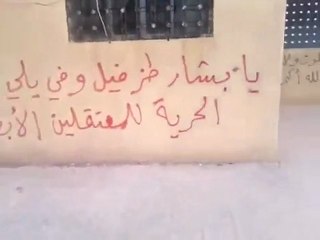 يا بشار طز فيك وفي يلي
الحرية للمعتقلين
الله أكبر